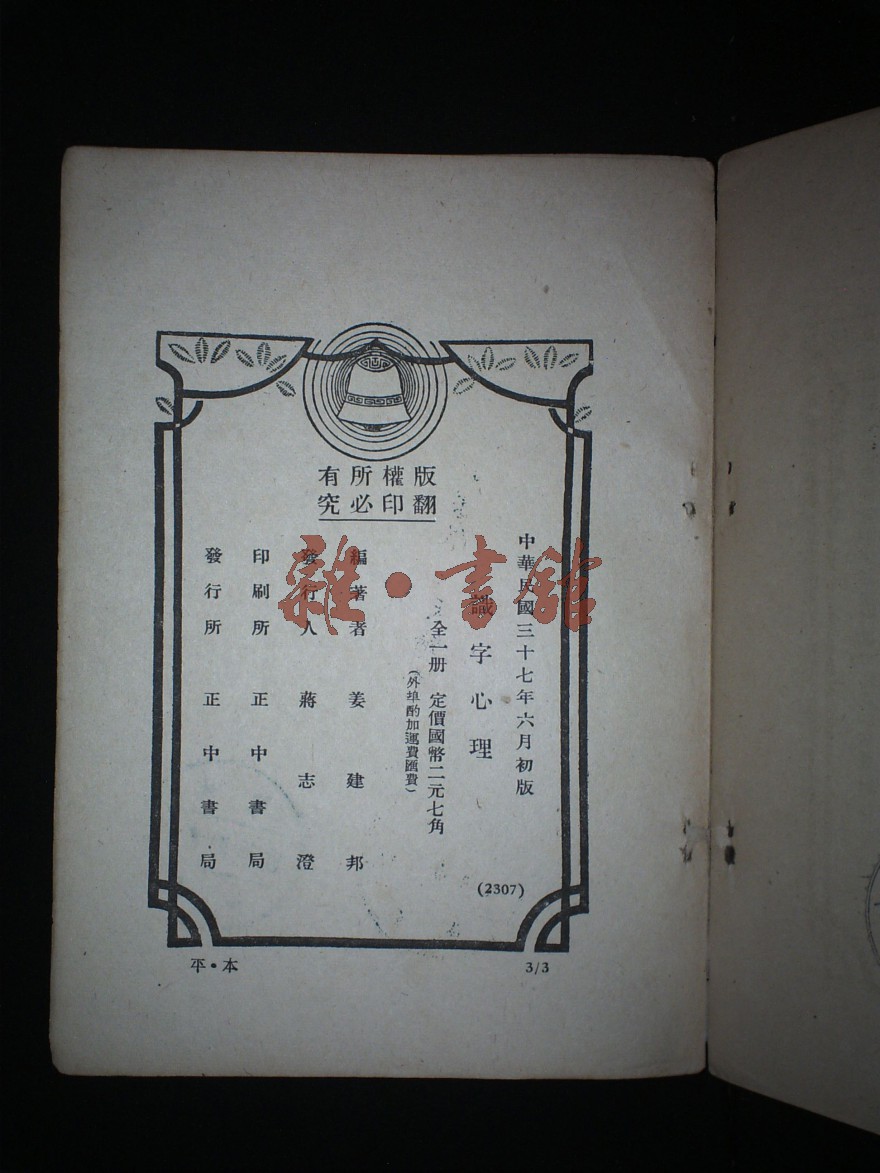 版權所有
翻印必究
中華民國三十七年六月初版
識字心理
全一册 定價國幣二元七角
(外埠酌加運費匯費)
編著者 姜建邦
發行人 蔣志澄
印刷所 正中書局
發行所 正中書局
(2307)
平·本
3/3
雜·書館